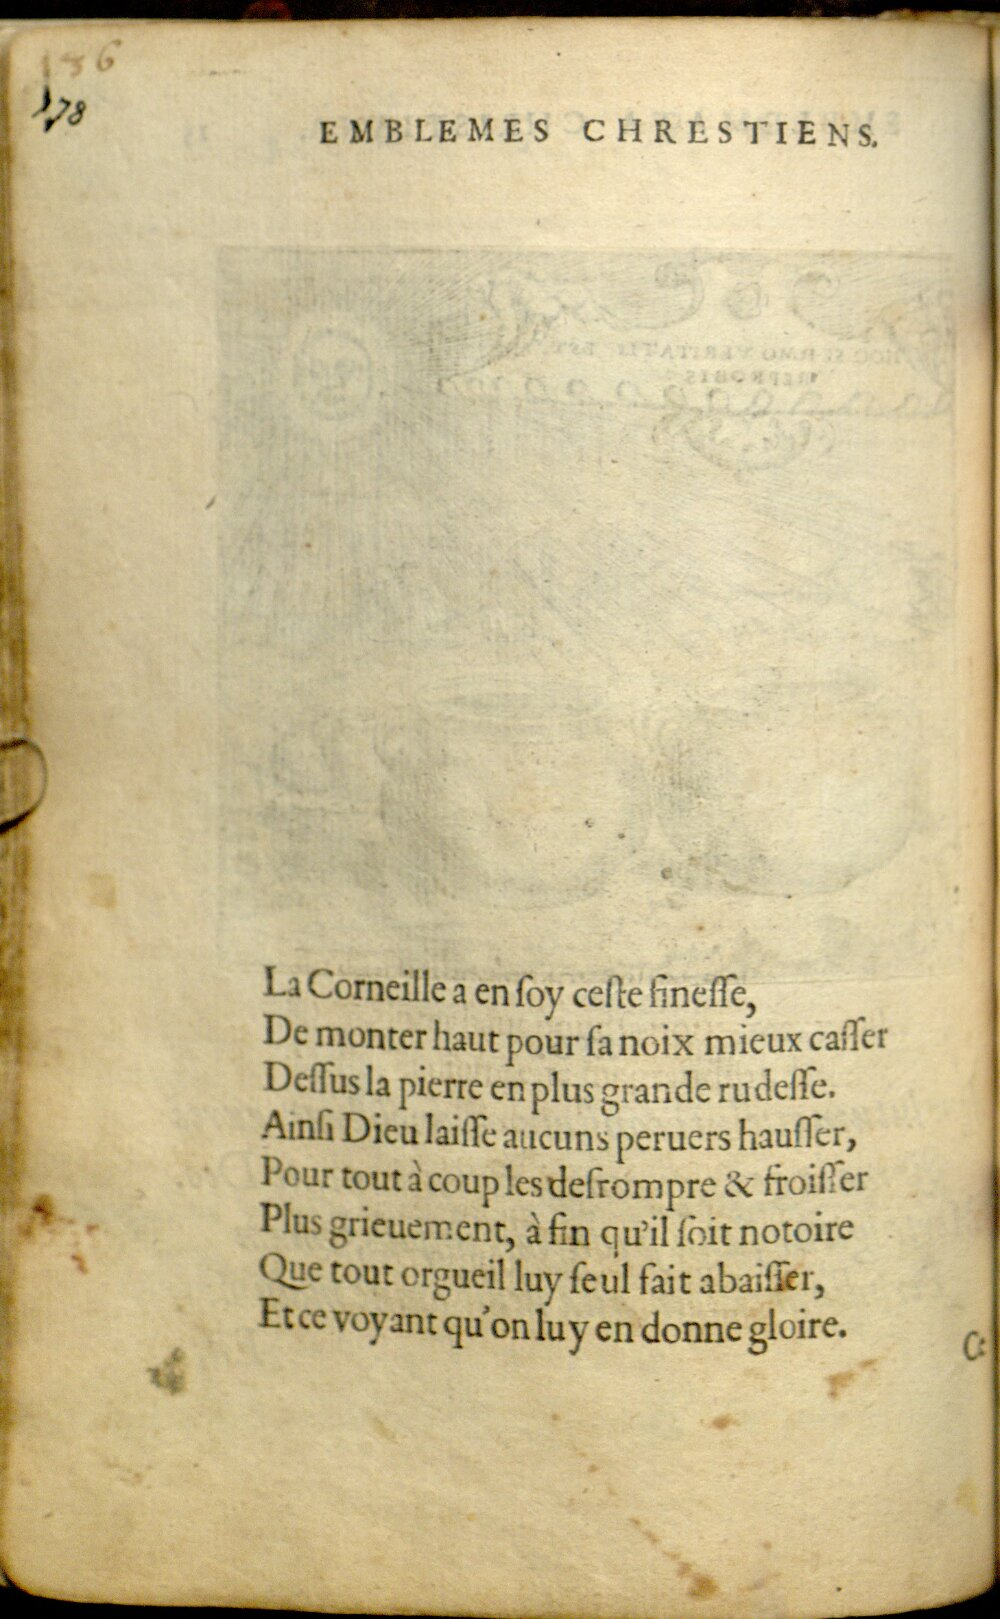 178
EMBLEMES CHRESTIENS.
La Corneille a en ſoy ceſte fineſſe,
De monter haut pour ſa noix mieux caſſer
Deſſus la pierre en plus grande rudeſſe.
Ainſi Dieu laiſſe aucuns peruers hauſſer,
Pour tout à coup les deſrompre & froiſſer
Plus grieuement, à fin qu'il ſoit notoire
Que tout orgueil luy ſeul fait abaiſſer,
Et ce voyant qu'on luy en donne gloire.